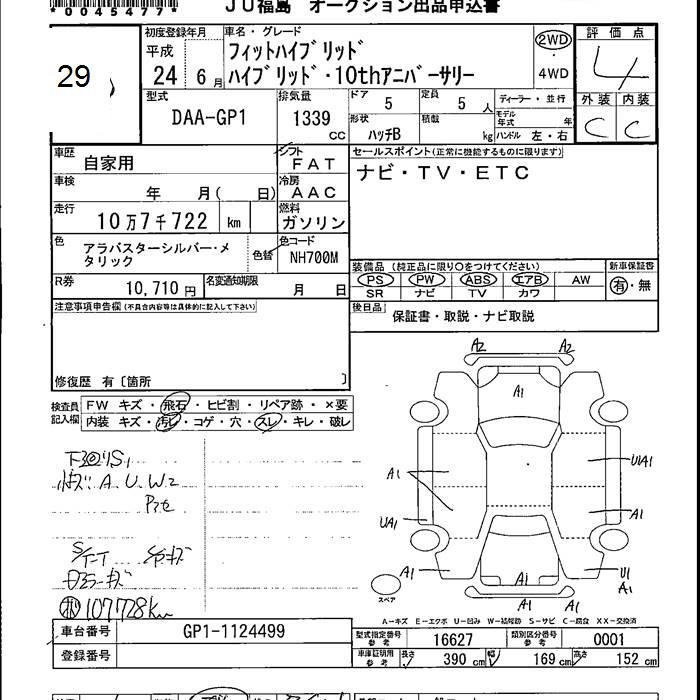 *0045477*
JU福島 オークション出品申込書
29
初度登録年月
平成
24 6 月
車名・グレード
フィットハイブリッド
ハイブリッド・10thアニバーサリー
2WD
・
4WD
評価点
4
外装 内装
C C
型式
DAA-GP1
排気量
1339
cc
ドア 5
定員 5 人
形状 ハッチB
積載 kg
ディーラー・並行
モデル年式 年
ハンドル 左・右
車歴 自家用
シフト FAT
セールスポイント(正常に機能するものに限ります)
ナビ・TV・ETC
車検 年 月( 日)
冷房 AAC
走行 10万7千722 km
燃料 ガソリン
色
アラバスターシルバー・メ
タリック
色替
色コード
NH700M
装備品(純正品に限り○をつけてください)
PS PW ABS エアB AW
SR ナビ TV カワ
新車保証書
有・無
R券 10,710 円
名変通知期限 月 日
後日品
保証書・取説・ナビ取説
注意事項申告欄(不具合内容等は具体的に記入して下さい)
修復歴 有〔箇所 〕
検査員
記入欄
FW キズ・飛石・ヒビ割・リペア跡・×要
内装 キズ・汚レ・コゲ・穴・スレ・キレ・破レ
A.U.W2
107728km
A2 A2
A1
A1
UA1
A1
U1A1
A1
U1
A1
A1
A1 A1
スペア
A-キズ E-エクボ U-凹み W-補修跡 S-サビ C-腐食 XX-交換済
車台番号 GP1-1124499
登録番号
型式指定番号
参考
16627
類別区分番号
参考
0001
車庫証明用
参考
長さ 390 cm
幅 169 cm
高さ 152 cm